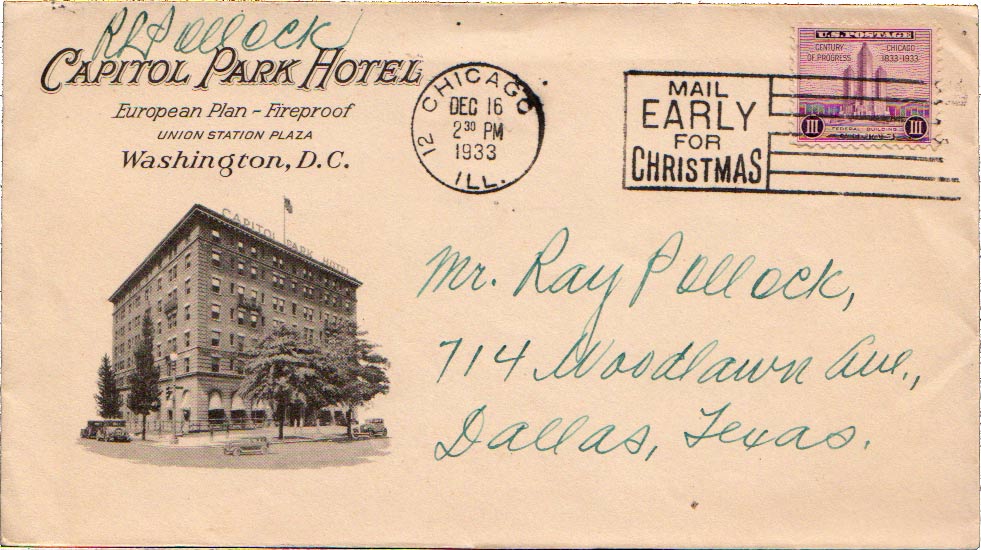 RLPollock
CAPITOL PARK HOTEL
European Plan - Fireproof
UNION STATION PLAZA
Washington, D.C.
CHICAGO
12
DEC 16
2 30 PM
1933
ILL.
MAIL
EARLY
FOR
CHRISTMAS
U.S. POSTAGE
CENTURY OF PROGRESS
CHICAGO 1833-1933
III
FEDERAL BUILDING
III
CAPITOL PARK HOTEL
Mr. Ray Pollock,
714 Woodlawn Ave.,
Dallas, Texas.